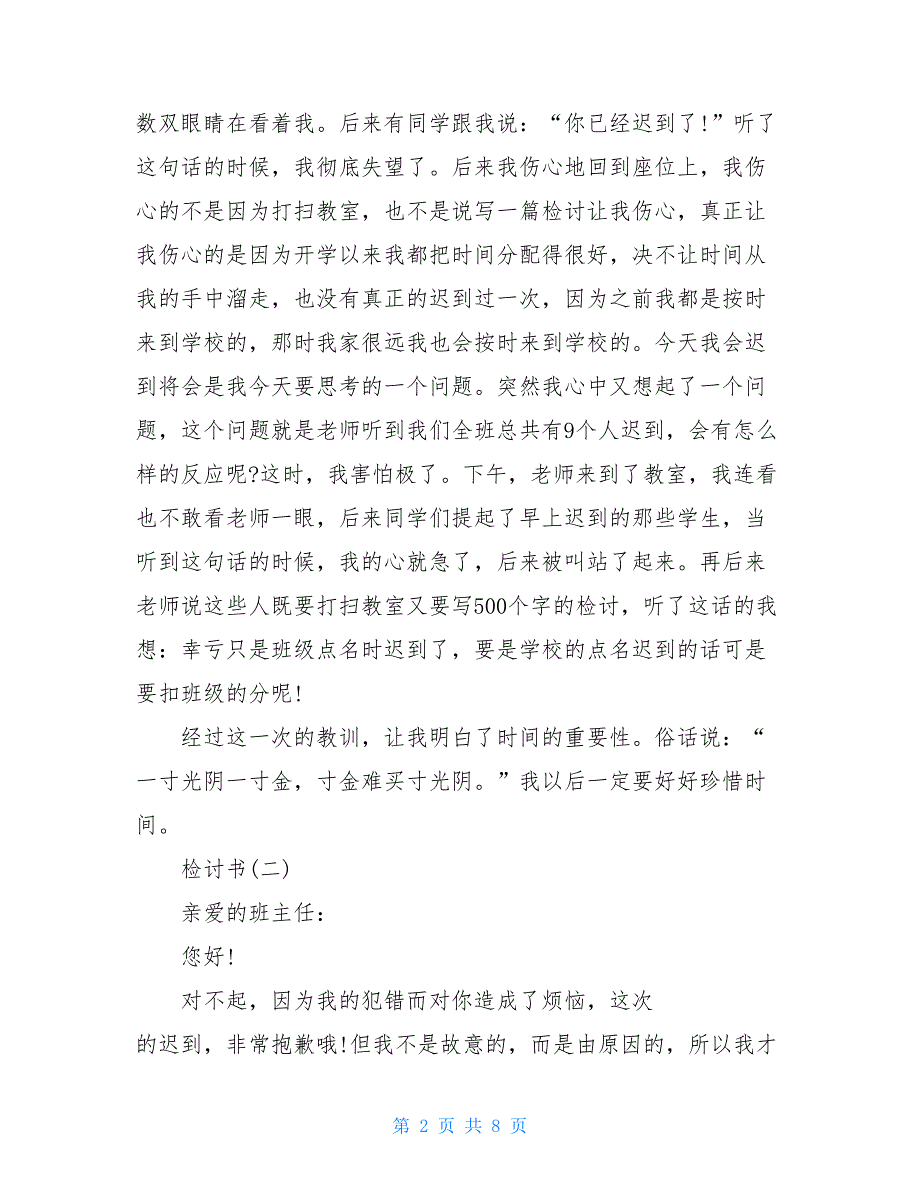 数双眼睛在看着我。后来有同学跟我说：“你已经迟到了!”听了
这句话的时候，我彻底失望了。后来我伤心地回到座位上，我伤
心的不是因为打扫教室，也不是说写一篇检讨让我伤心，真正让
我伤心的是因为开学以来我都把时间分配得很好，决不让时间从
我的手中溜走，也没有真正的迟到过一次，因为之前我都是按时
来到学校的，那时我家很远我也会按时来到学校的。今天我会迟
到将会是我今天要思考的一个问题。突然我心中又想起了一个问
题，这个问题就是老师听到我们全班总共有9个人迟到，会有怎么
样的反应呢?这时，我害怕极了。下午，老师来到了教室，我连看
也不敢看老师一眼，后来同学们提起了早上迟到的那些学生，当
听到这句话的时候，我的心就急了，后来被叫站了起来。再后来
老师说这些人既要打扫教室又要写500个字的检讨，听了这话的我
想：幸亏只是班级点名时迟到了，要是学校的点名迟到的话可是
要扣班级的分呢!
经过这一次的教训，让我明白了时间的重要性。俗话说：“
一寸光阴一寸金，寸金难买寸光阴。”我以后一定要好好珍惜时
间。
检讨书(二)
亲爱的班主任：
您好!
对不起，因为我的犯错而对你造成了烦恼，这次
的迟到，非常抱歉哦!但我不是故意的，而是由原因的，所以我才
第 2 页 共 8 页